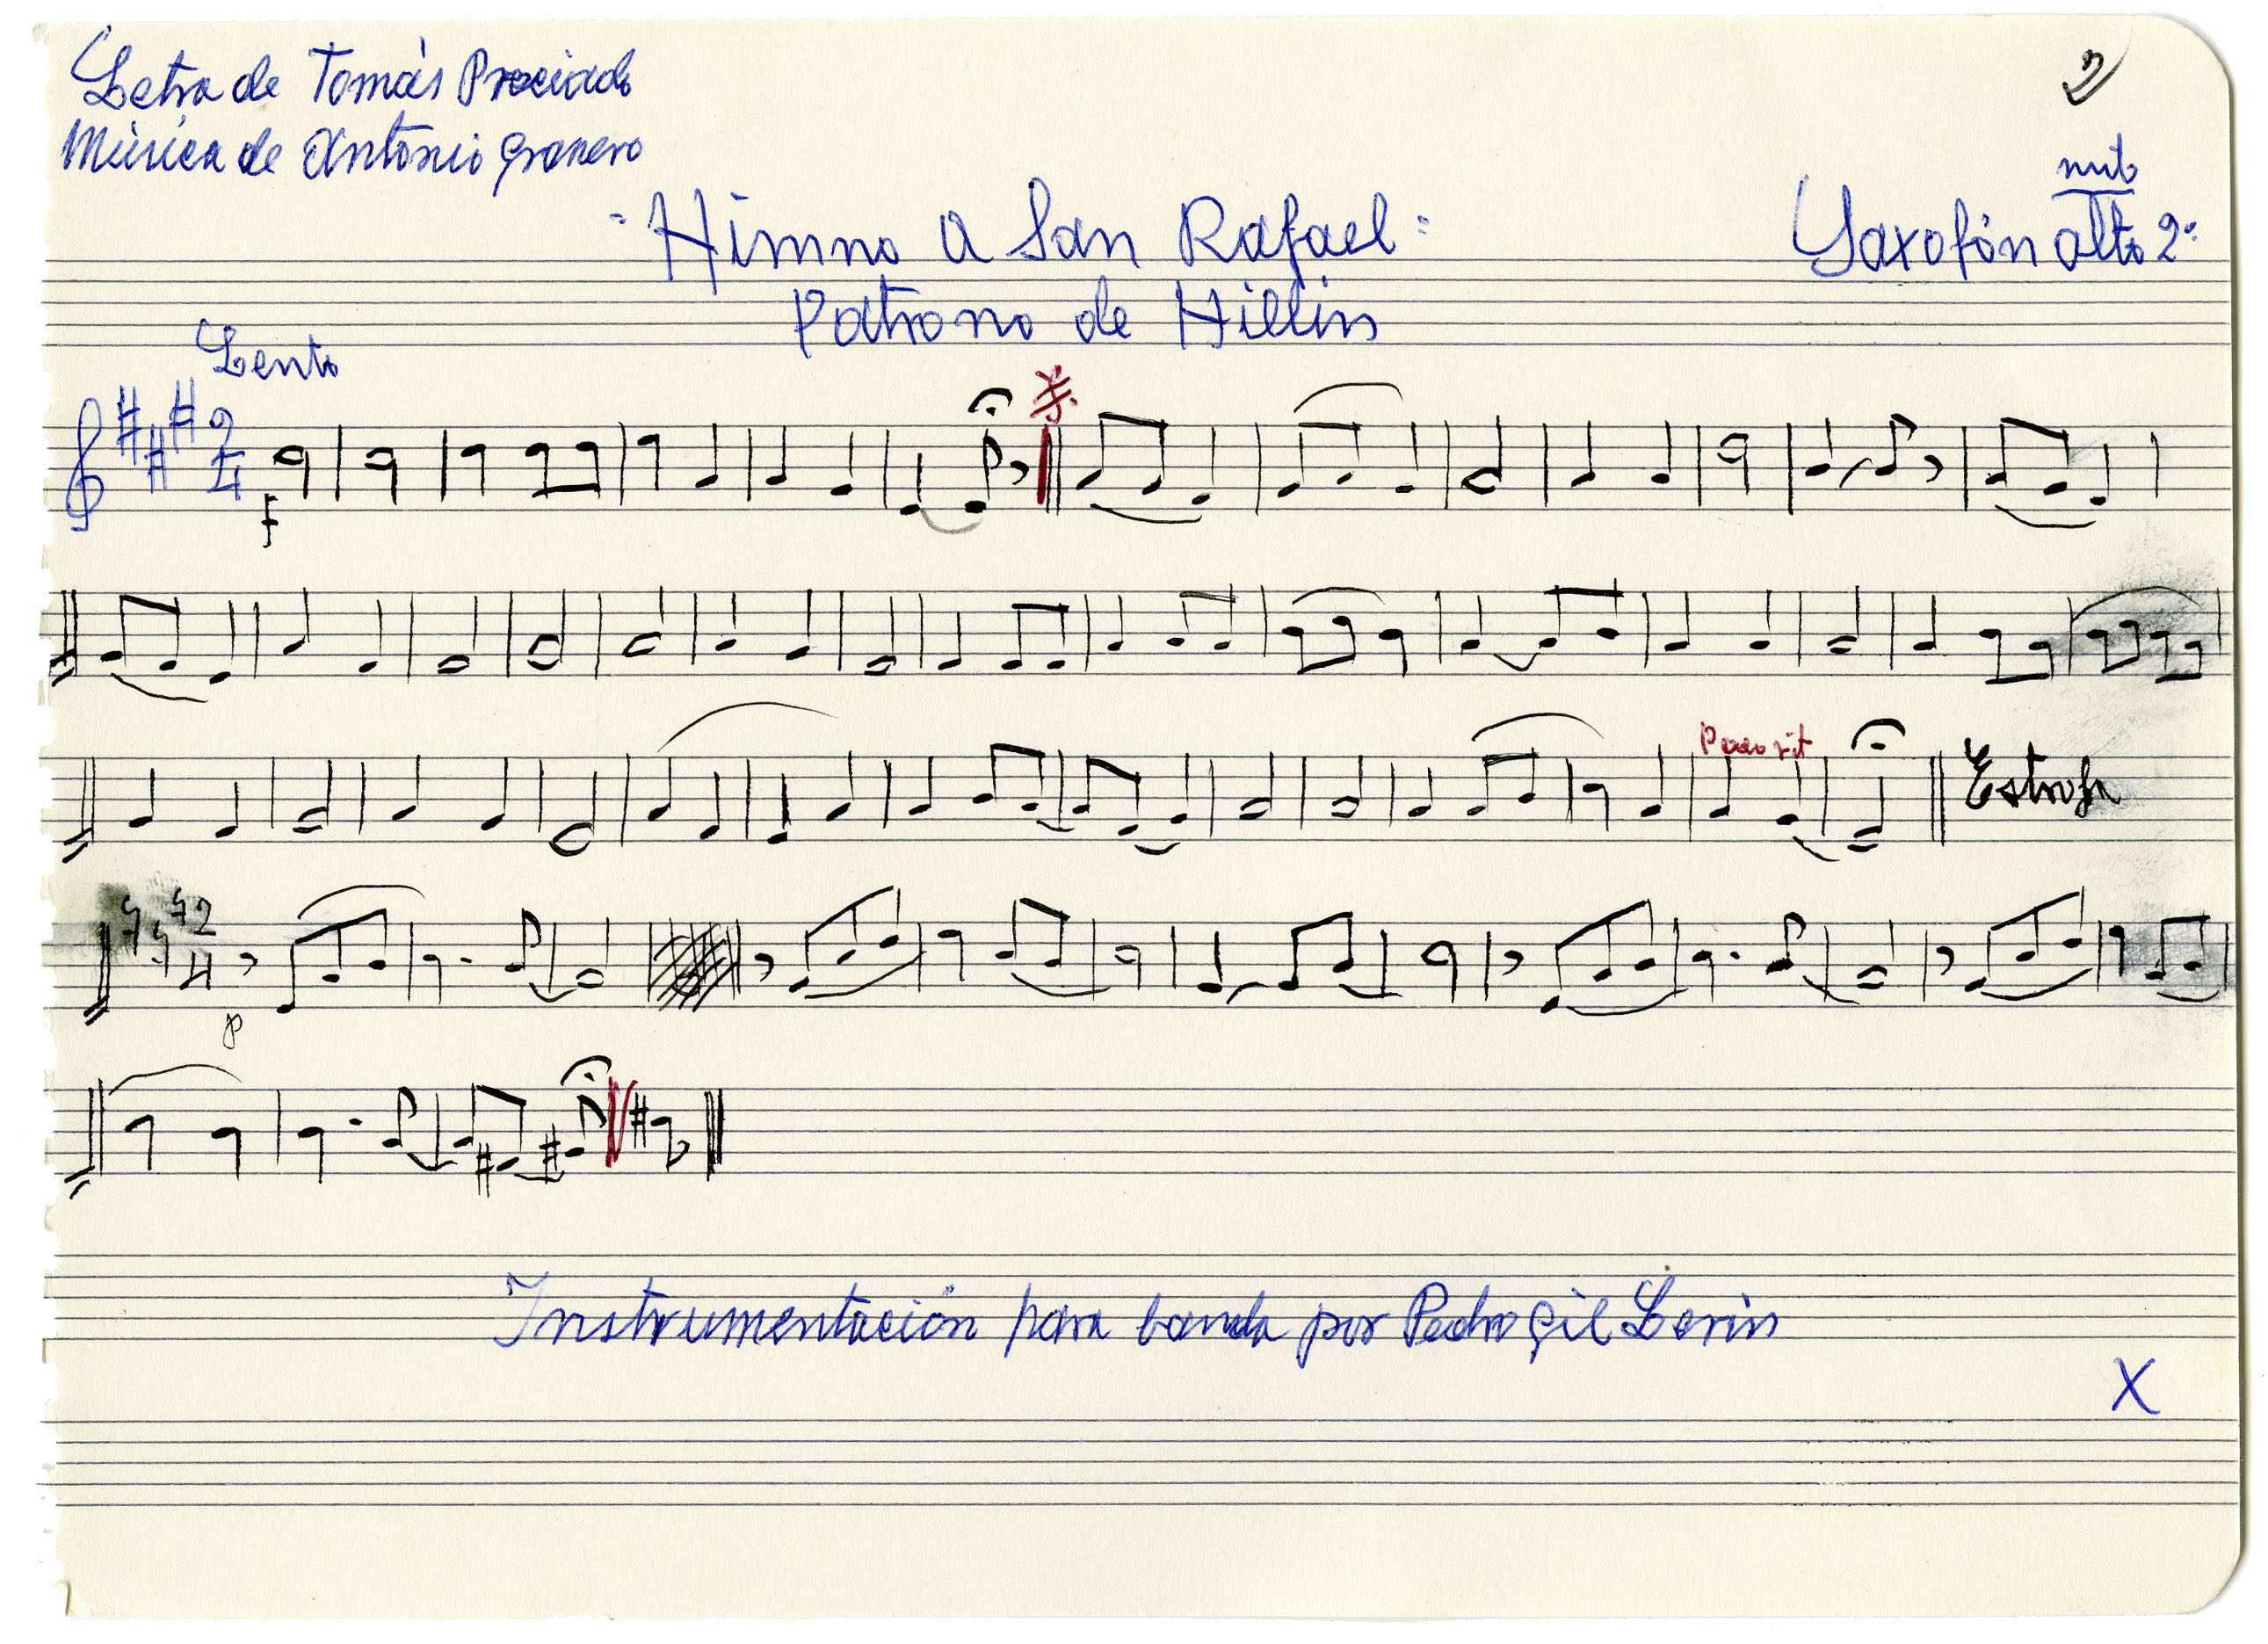 Letra de Tomás Preciado
Música de Antonio Granero
2
mib
"Himno a San Rafael"
Saxofón alto 2º
Patrono de Hellín
Lento
2
4
f
Poco rit
Estrofa
2
4
p
Instrumentación para banda por Pedro Gil Lerín
X